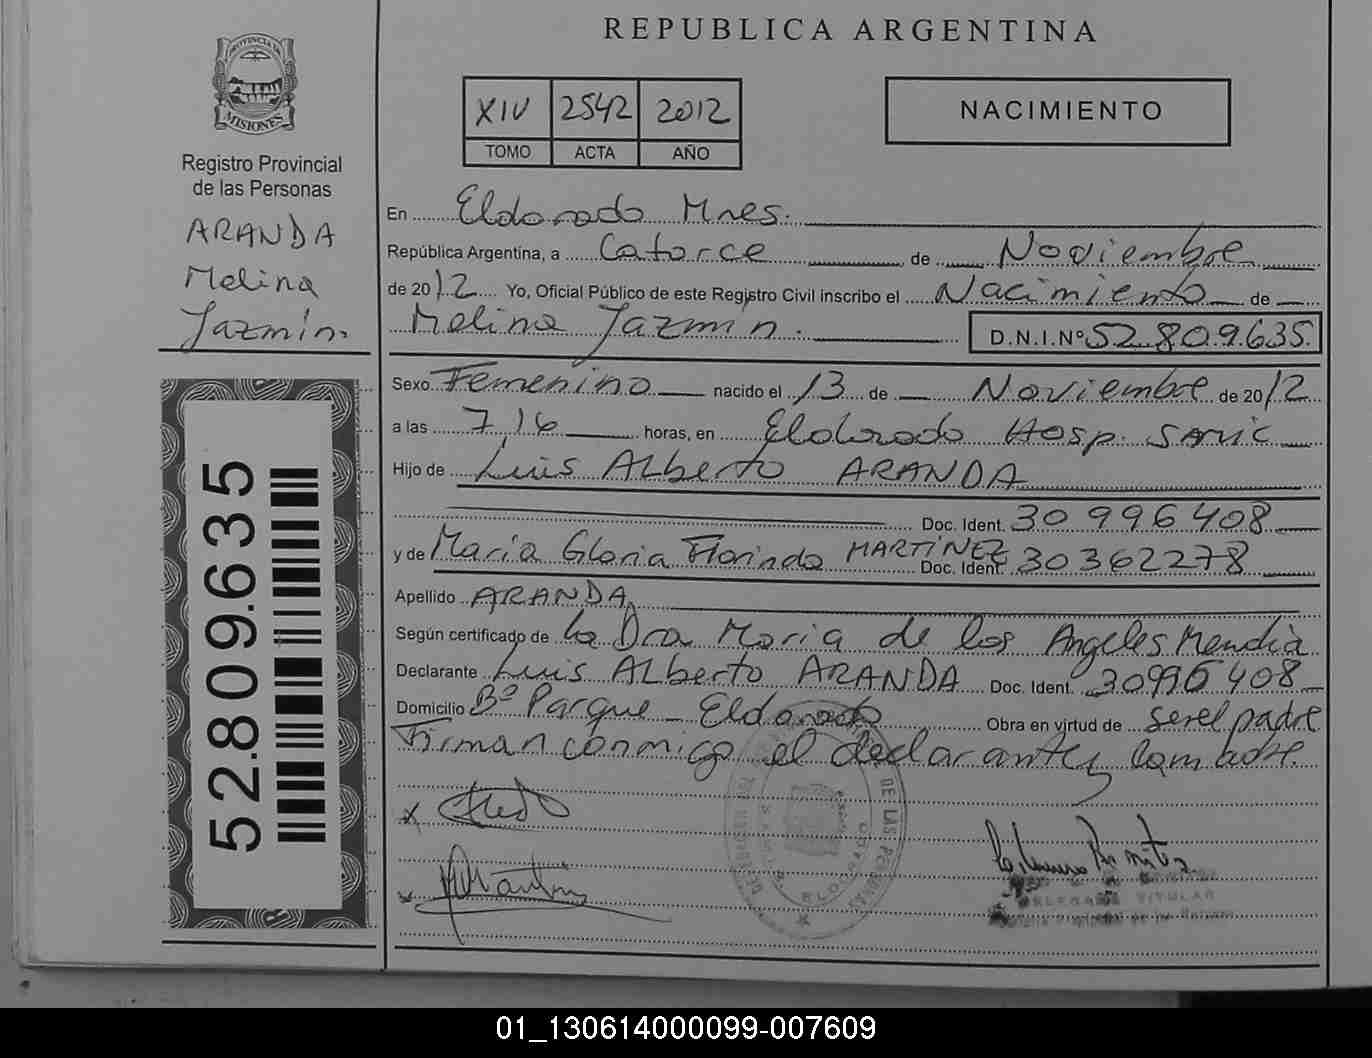 REPUBLICA ARGENTINA
PROVINCIA DE
MISIONES
Registro Provincial
de las Personas
ARANDA
Melina
Jazmín.
52.809.635
XIV 2542 2012
TOMO ACTA AÑO
NACIMIENTO
En Eldorado Mnes.
República Argentina, a Catorce de Noviembre
de 2012 Yo, Oficial Público de este Registro Civil inscribo el Nacimiento de
Melina Jazmín. D.N.I.Nº 52.809.635.
Sexo Femenino nacido el 13 de Noviembre de 2012
a las 7,16 horas, en Eldorado Hosp. SAMIC
Hijo de Luis ALberto ARANDA
Doc. Ident. 30996408
y de María Gloria Florinda MARTÍNEZ Doc. Ident. 30362278
Apellido ARANDA
Según certificado de la Dra Maria de los Angeles Mendia
Declarante Luis ALberto ARANDA Doc. Ident. 30996408
Domicilio Bº Parque - Eldorado Obra en virtud de ser el padre
Firman conmigo el declarante y la madre.
DE LAS PERSONAS
TITULAR
01_130614000099-007609